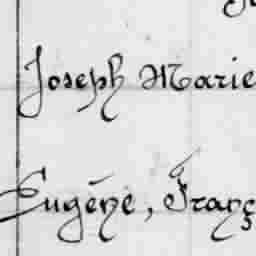 Joseph Marie
Eugéne, Franç